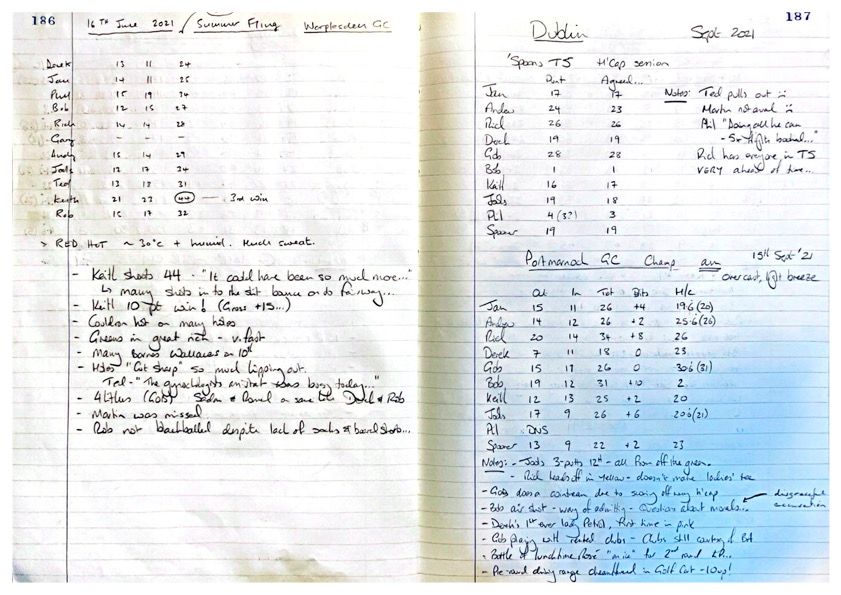 186
16TH June 2021 / Summer Fling Worplesdon GC
Derek 13 11 24
Jan 14 11 25
Phil 15 19 34
Bob 12 15 27
Rich 14 14 28
Gary - - -
Andy 15 14 29
Jods 12 17
Ted 13 18 31
Keith 21 23 44 — 3rd win
Rob 15 17 32
> RED HOT ~ 30°C + humid. Much sweat.
- Keith shoots 44 - "It could have been so much more..."
↳ many shots in to the
- Keith 10 pt win! (Gross +15...)
- Couldn't hit on many holes
- Greens in great nick - v. fast
- Many on 10th
- Holes "Cut Sharp" so much lipping out.
Ted - "The gynaecologists was busy today..."
- (Gobs) same Derek & Rob
- Martin was missed
- Rob not blackballed despite lack of socks & board shorts...
187
Dublin Sept 2021
'Spoons T5 H'Cap session
Agreed...
Jan 17 17
Andrew 24 23
Rich 26 26
Derek 19 19
Gob 28 28
Bob 1 1
Keith 16 17
Jods 19 18
Phil 4 (3?) 3
Spooner 19 19
Notes: Ted pulls out
Martin not avail
Phil "Doing all he can
- 5x flights booked..."
Rich has everyone in T5
VERY ahead of time...
Portmarnock GC Champ am 15th Sept '21
overcast, light breeze
Out In Tot Bits H/c
Jan 15 11 26 +4 19.6 (20)
Andrew 14 12 26 +2 25.6 (26)
Rich 20 14 34 +8 26
Derek 7 11 18 0 23
Gob 15 11 26 0 30.6 (31)
Bob 19 12 31 +10 2
Keith 12 13 25 +2 20
Jods 17 9 26 +6 20.6 (21)
Phil DNS
Spooner 13 9 22 +2 23
Notes: - Jods 3-putts 12th - all from off the green.
- Rich heads off in yellow - doesn't make ladies' tee
- Gobs does a due to h'cap
- Bob air shot - way of admitting - Questions about morals... ← disgraceful accusation
- Derek's 1st ever lady, first time in pink
- Gob playing with rented clubs - Clubs still courtesy of
- Bottle of lunchtime Rosé "nice" for 2nd round
- Pre-round driving range in Golf Cart - 10up!